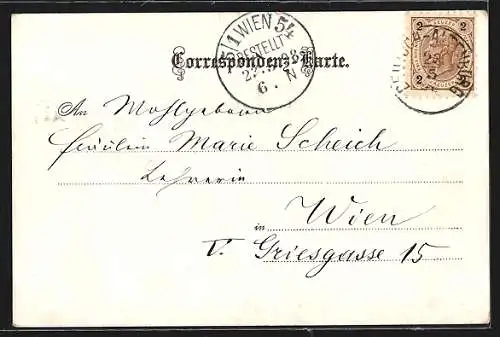 5/1 WIEN 54
BESTELLT
6. N
Correspondenz-Karte.
2 2
An Wohlgeboren
Fräulein Marie Scheich
Lehrerin
in Wien
V. Griesgasse 15